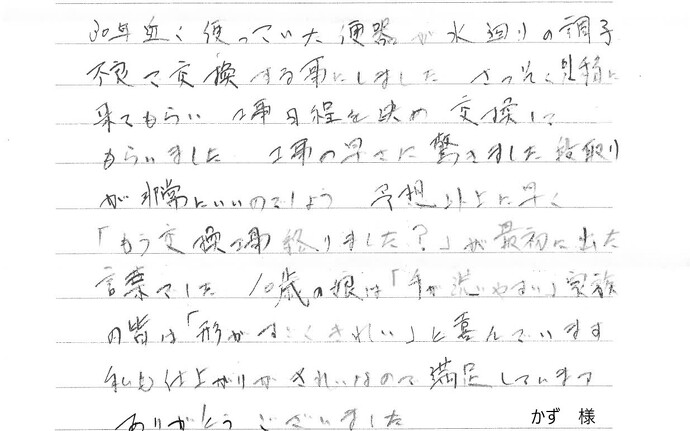 30年近く使っていた便器が水廻りの調子
不良で交換する事にしました さっそく見積に
来てもらい 工事日程を決め 交換して
もらいました 工事の早さに驚きました 段取り
が非常にいいのでしょう 予想以上に早く
「もう交換工事終りました?」が最初に出た
言葉でした 10歳の娘は「手が洗いやすい」家族
の皆は「形がすごくきれい」と喜んでいます
私も仕上がりがきれいなので満足しています
ありがとうございました
かず 様